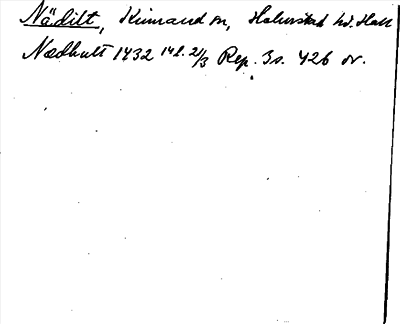 Nädilt, Kinnared sn, Halmstad hd. Hall
Nædhult 1432 14/2. 2/3 Rep. 3 s. 426 or.